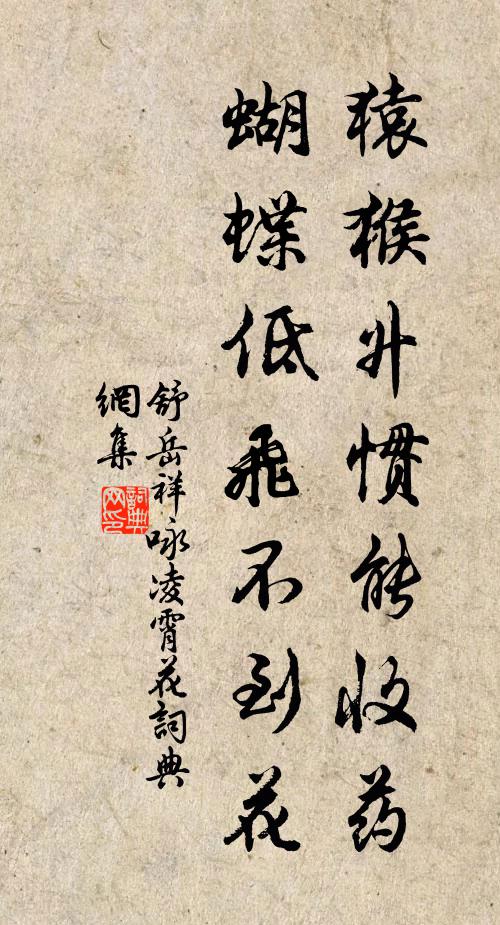 猿猴升惯能收药
蝴蝶低飛不到花
舒岳祥咏凌霄花詞典
網集
詞典
网印